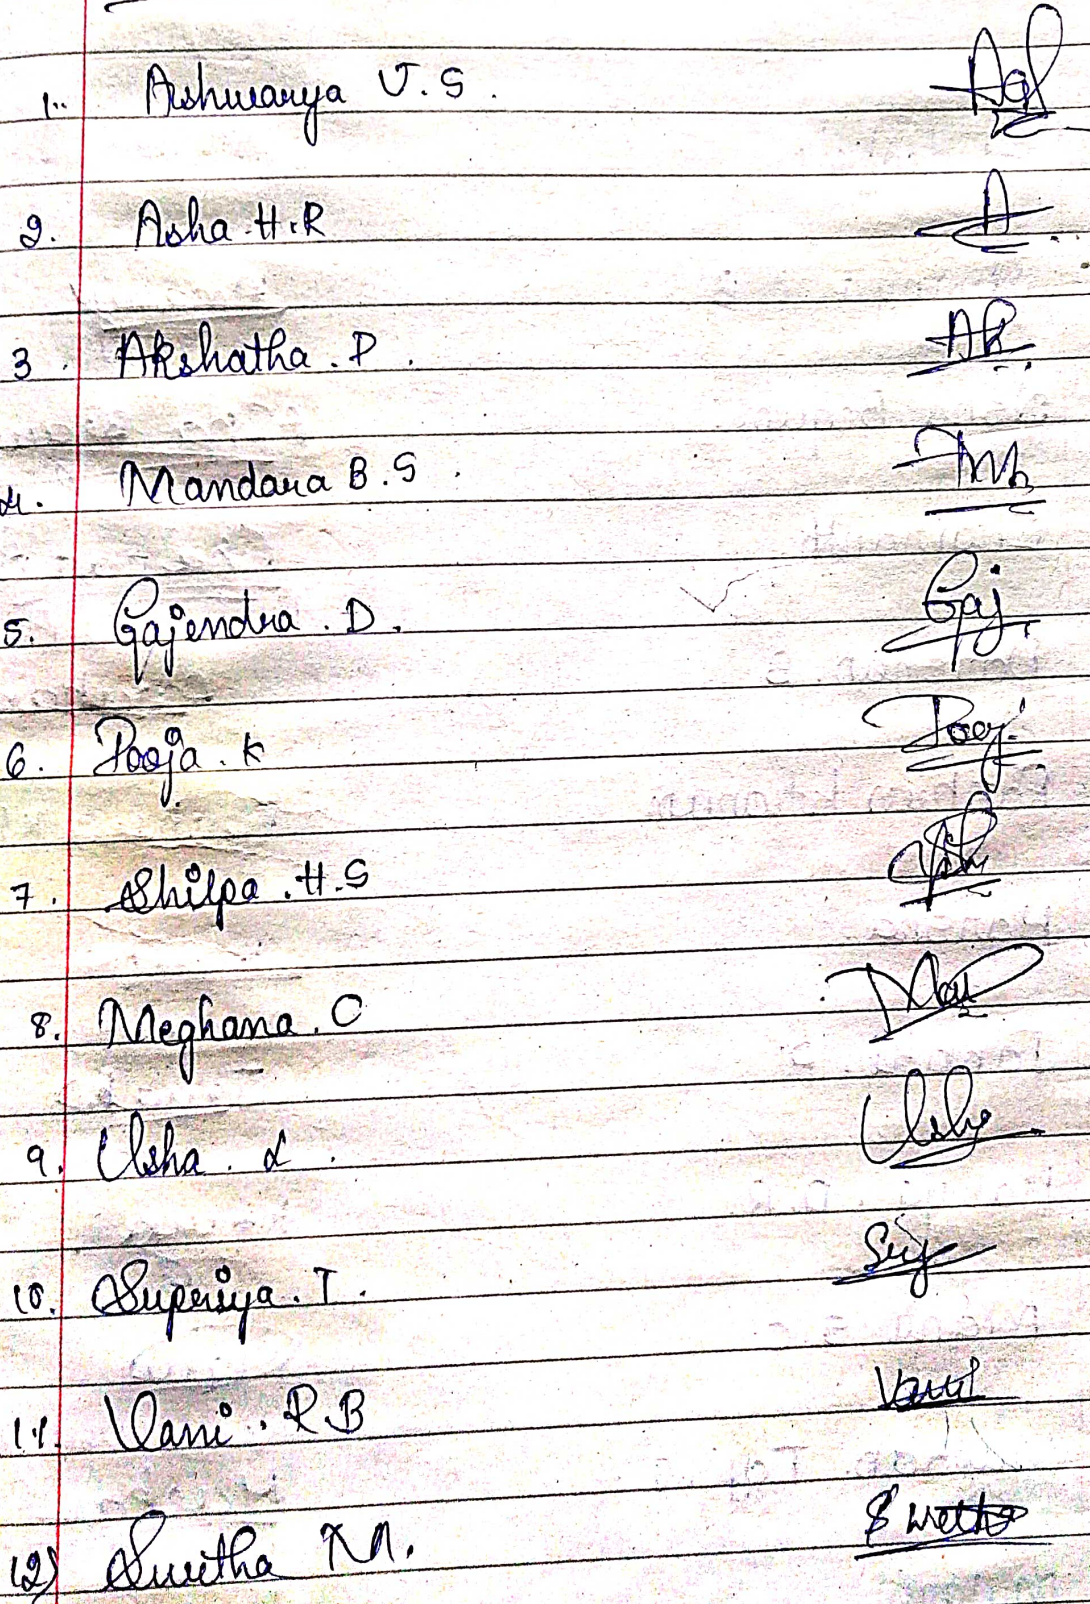 1. Aishwarya V.S.
2. Asha H.R
3. Akshatha. P.
4. Mandara B.S.
5. Gajendra. D. Gaj
6. Pooja. K Pooj
7. Shilpa. H.S
8. Meghana. C
9. Usha. L. Usha
10. Supriya. T.
11. Vani. R.B Vani
12) Swetha M. Swetha